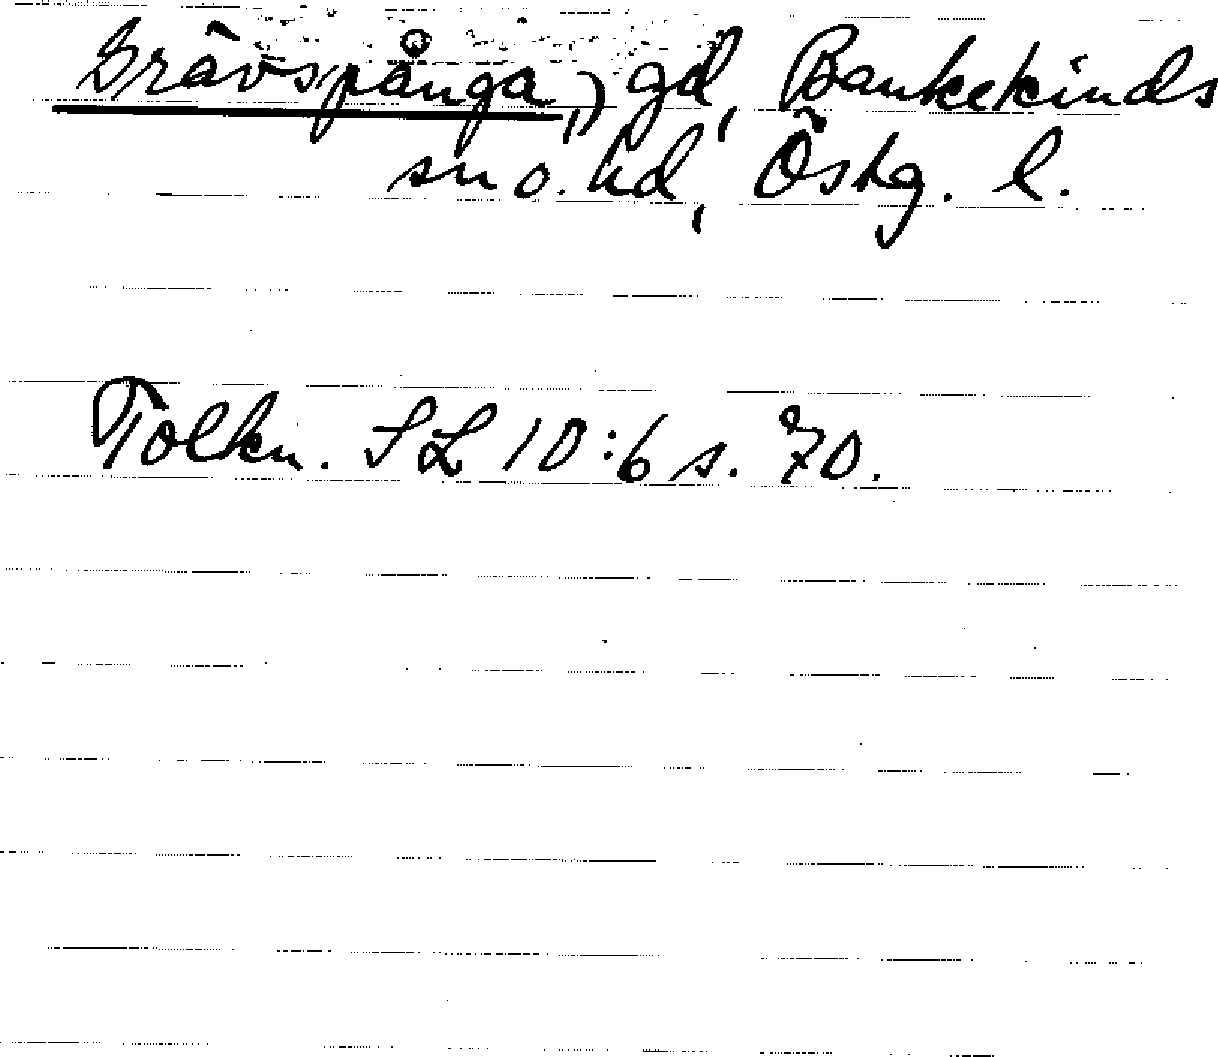 Grävspånga,) gd, Bankekinds
sn o. hd, Östg. l.
Tolkn. SL 10:6 s. 70.